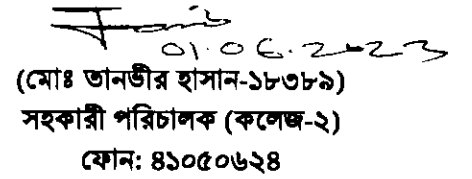 01.06.2023
(মোঃ তানভীর হাসান-১৮৩৮৯)
সহকারী পরিচালক (কলেজ-২)
ফোন: ৪১০৫০৬২৪